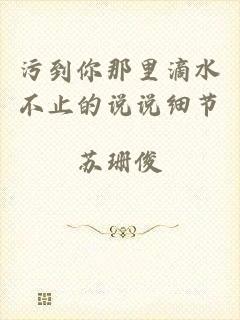 污到你那里滴水
不止的说说细节
苏珊俊